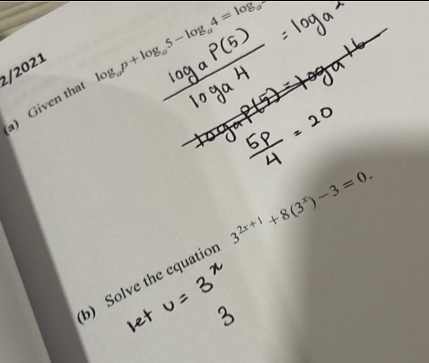 2/2021
(a) Given that logₐp + logₐ5 − logₐ4 = logₐ
loga P(5) = loga
loga 4
loga P(5) = loga 16
5P/4 = 20
(b) Solve the equation 3²ˣ⁺¹ + 8(3ˣ) − 3 = 0.
let u = 3ˣ
3